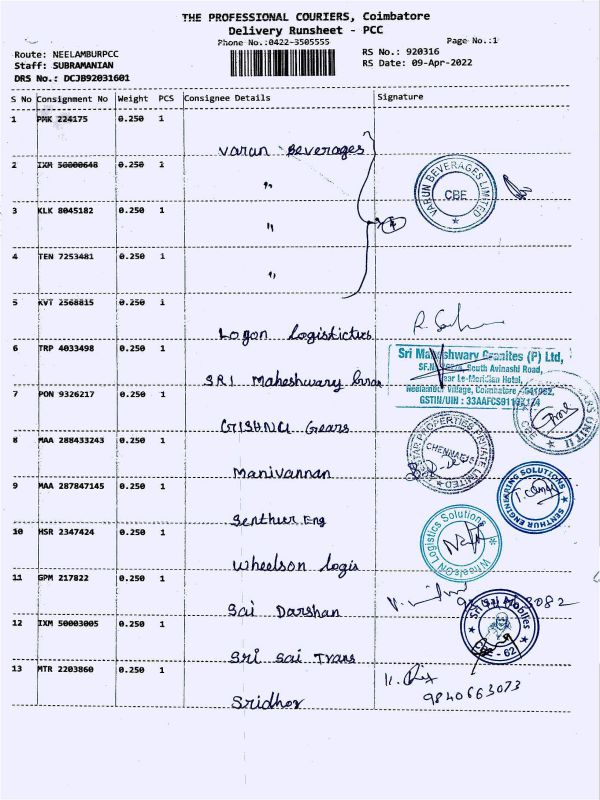 THE PROFESSIONAL COURIERS, Coimbatore
Delivery Runsheet - PCC
Phone No.:0422-3505555
Page No.:1
Route: NEELAMBURPCC
RS No.: 920316
Staff: SUBRAMANIAN
RS Date: 09-Apr-2022
DRS No.: DCJB92031601
S No Consignment No Weight PCS Consignee Details Signature
1 PMK 224175 0.250 1
Varun Beverages
2 IXM 50000648 0.250 1
"
VARUN BEVERAGES LIMITED
CBE
3 KLK 8045182 0.250 1
"
4 TEN 7253481 0.250 1
"
5 KVT 2568815 0.250 1
Logon Logistictus
6 TRP 4033498 0.250 1
Sri Maheshwary Granites (P) Ltd,
South Avinashi Road,
Near Le-Meridian Hotel,
Neelambur Village, Coimbatore
GSTIN/UIN :
SRI Maheshwary
7 PON 9326217 0.250 1
Gears
UNIT II
CBE
8 MAA 288433243 0.250 1
Manivannan
STAR PROPERTIES PRIVATE LIMITED
CHENNAI
9 MAA 287847145 0.250 1
Senthur Eng
SENTHUR ENGINEERING SOLUTIONS
10 HSR 2347424 0.250 1
Wheelson Logis
WheelsON Logistics Solutions
11 GPM 217822 0.250 1
Sai Darshan
12 IXM 50003005 0.250 1
Sri Sai Trans
Sri Sai Mobiles
13 MTR 2203860 0.250 1
Sridhor
9840663073